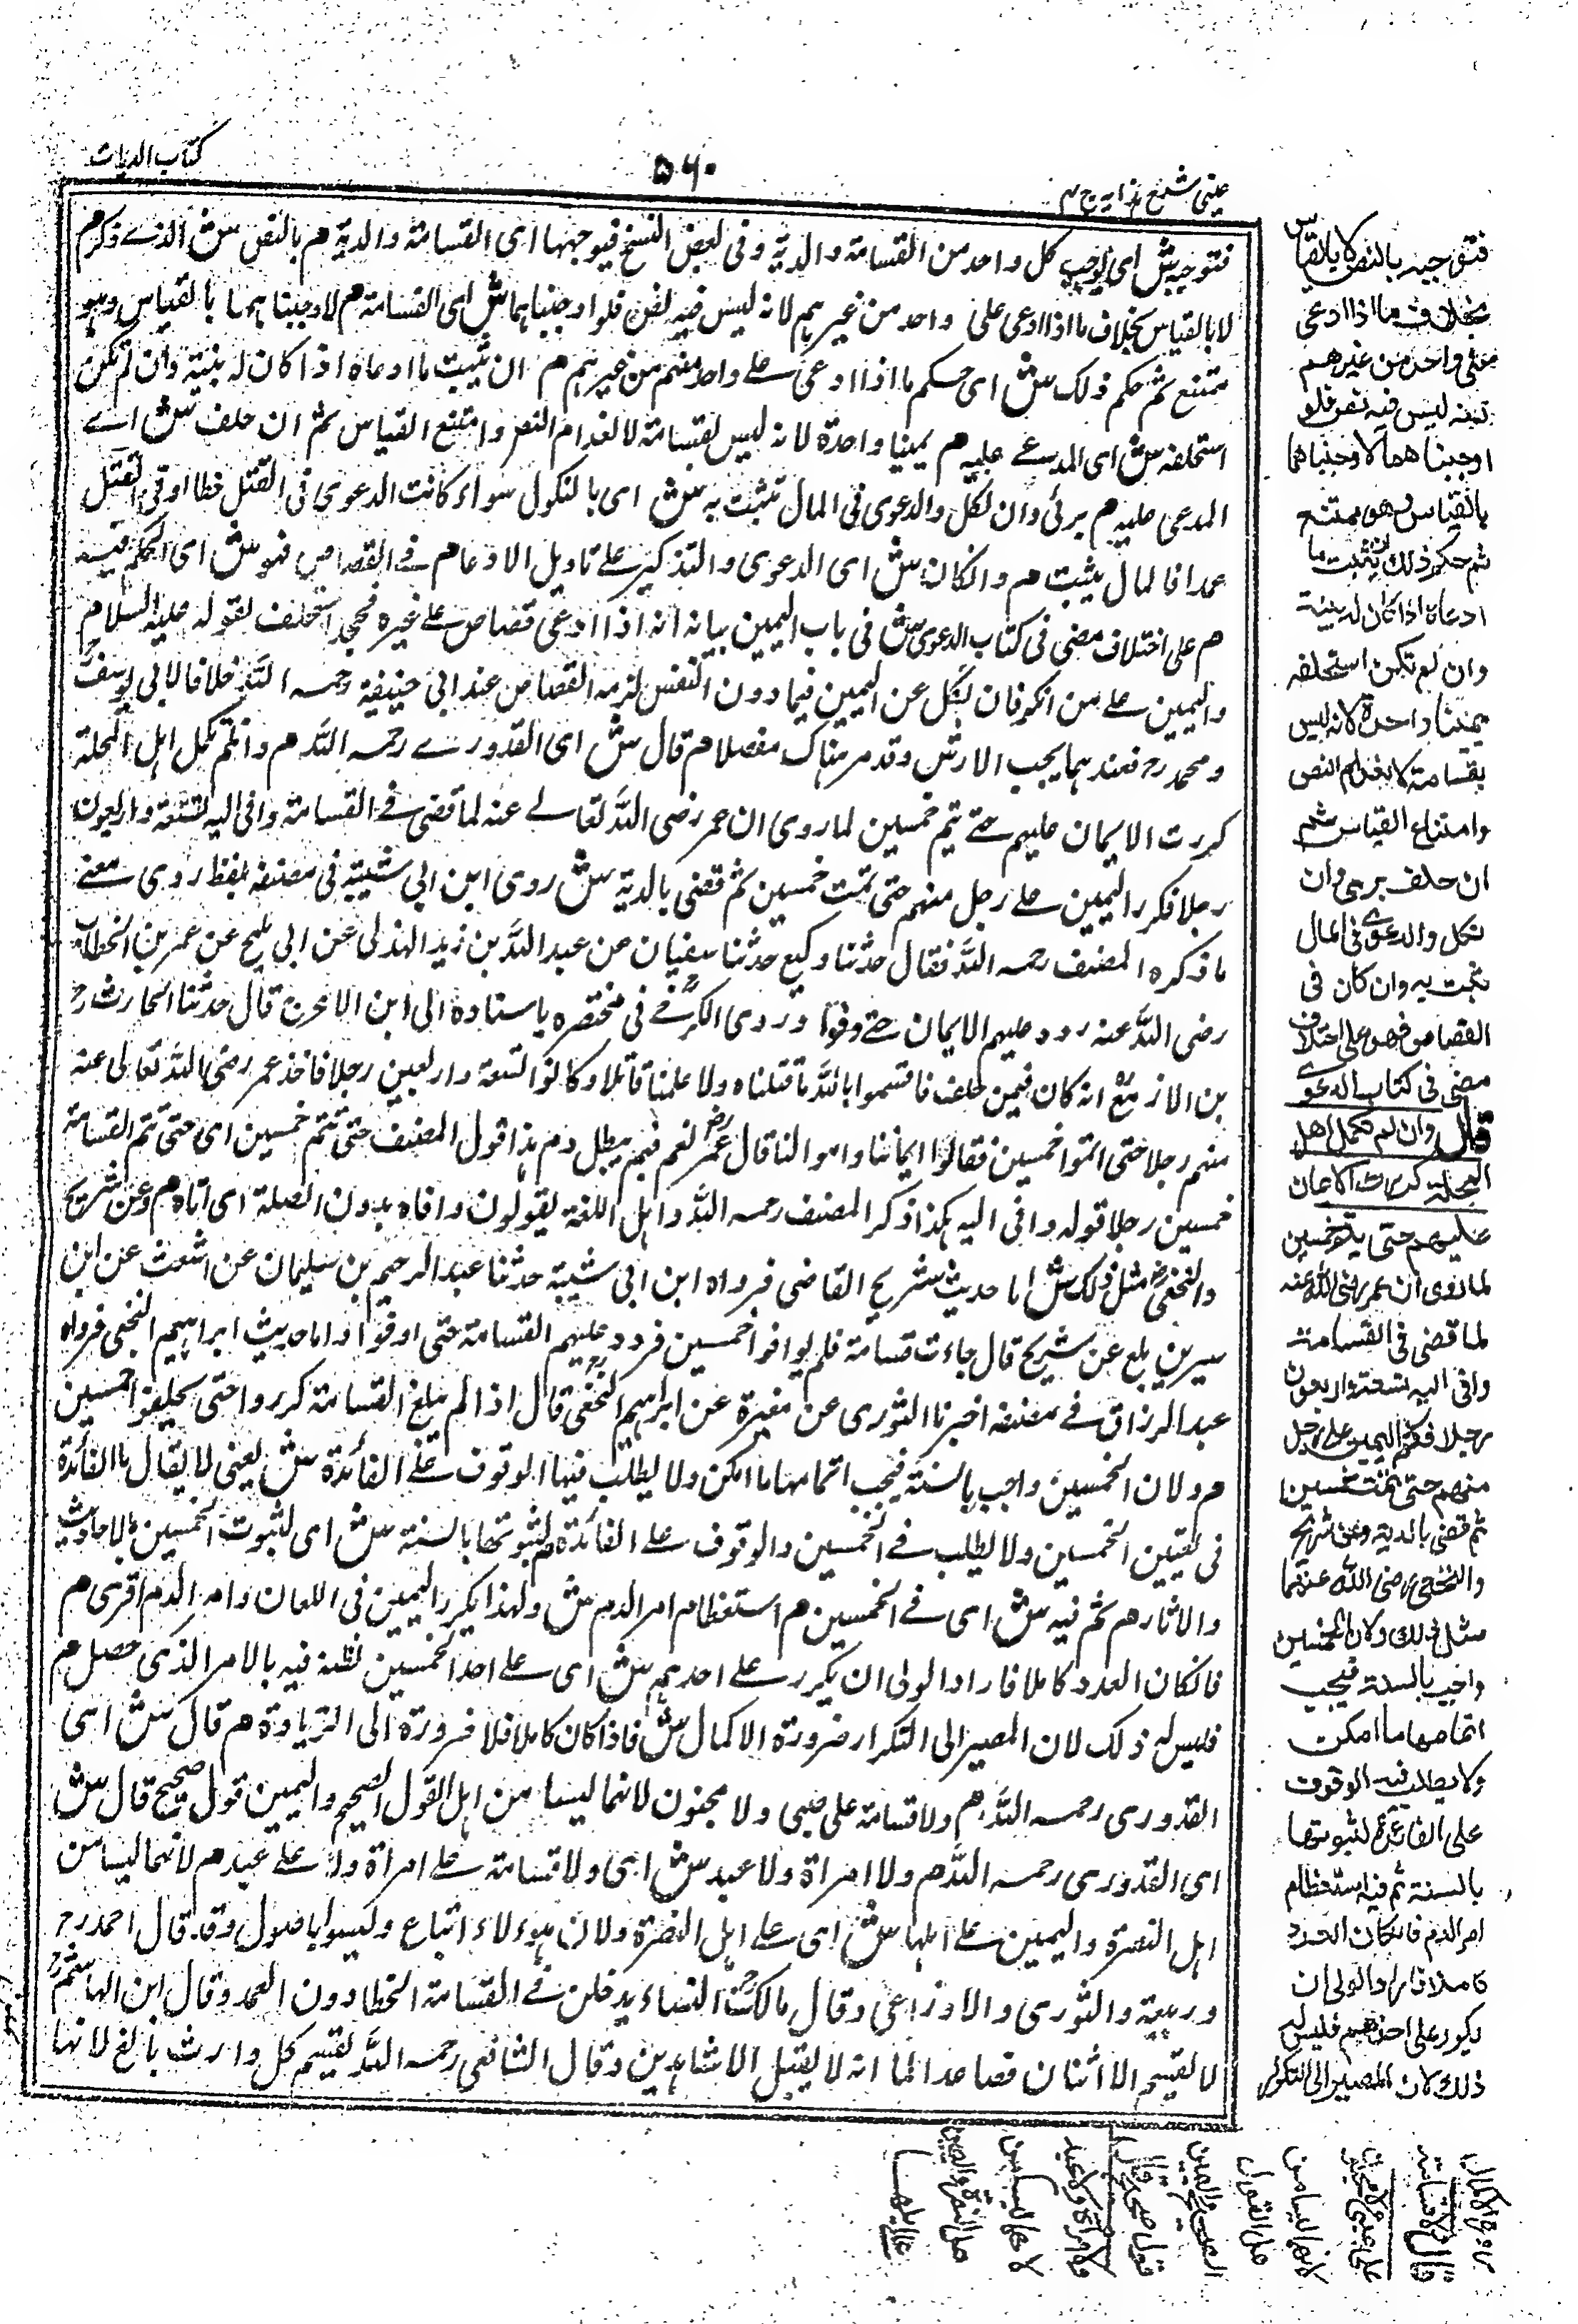 كتاب الديات
٥٦٠
عينى شرح هدايه ج ٤
فتوجبه ش اى يوجب كل واحد من القسامة والدية وفى بعض النسخ فيوجبها اى القسامة والدية م بالنص ش الذے ذكر م
لا بالقياس بخلاف ما اذا ادعى على واحد من غيرهم لانه ليس فيه نص فلو اوجبناهما ش اى القسامة م لاوجبناهما بالقياس وهو
ممتنع ثم حكم ذلك ش اى حكم ما اذا ادعى على واحد منهم من غيرهم م ان يثبت ما ادعاه اذا كان له بينة وان لم تكن
استحلفه ش اى المدعے عليه م يمينا واحدة لانه ليس بقسامة لانعدام النص وامتنع القياس ثم ان حلف ش اے
المدعى عليه م برئ وان نكل والدعوى فى المال تثبت به ش اى بالنكول سواء كانت الدعوى فى القتل خطا او فى القتل
عمدا فالمال يثبت م وان كان ش اى الدعوى والتذكير على تاويل الادعا م فے القصاص فهو ش اى الحكم فيه
م على اختلاف مضى فى كتاب الدعوى ش فى باب اليمين بيانه انه اذا ادعى قصاص على غيره فجحد استحلف لقوله عليه السلام
واليمين على من انكر فان نكل عن اليمين فيما دون النفس لزمه القصاص عند ابى حنيفة رحمه الله خلافا لابى يوسف رح
ومحمد رح فعندهما يجب الارش وقد مر هناك مفصلا م قال ش اى القدورے رحمه الله م وان لم تكمل اهل المحلة
كررت الايمان عليهم حتے تتم خمسين لما روى ان عمر رضى الله تعالے عنه لما قضى فے القسامة وافى اليه تسعة واربعون
رجلا فكرر اليمين على رجل منهم حتى تمت خمسين ثم قضى بالدية ش روى ابن ابى شيبة فى مصنفه بلفظ روى معنے
ما ذكره المصنف رحمه الله فقال حدثنا وكيع حدثنا سفيان عن عبد الله بن زيد الهذلى عن ابى مليح عن عمر بن الخطاب
رضى الله عنه ردد عليهم الايمان حتے وفوا وروى الكرخے فى مختصره باسناده الى ابن الاعرج قال حدثنا الحارث رح
بن الازمع انه كان فيمن حلف فاقسموا بالله ما قتلناه ولا علمنا قاتلا وكانوا تسعة واربعين رجلا فاخذ عمر رضى الله تعالى عنه
منهم رجلا حتى اتموا خمسين فقالوا ايماننا واموالنا قال عمر رض نعم فبم يبطل دم هذا قول المصنف حتى تتم خمسين اى حتى تتم القسامة
خمسين رجلا قوله وافى اليه هكذا ذكر المصنف رحمه الله واهل اللغة يقولون وافاه بدون الصلة اى اتاه م وعن شريح
والنخعى رض مثل ذلك ش اما حديث شريح القاضى فرواه ابن ابى شيبة حدثنا عبد الرحيم بن سليمان عن اشعث عن ابن
سيرين بلغ عن شريح قال جاءت قسامة فلم يوافوا خمسين فردد عليهم القسامة حتى اوفوا واما حديث ابراهيم النخعى فرواه
عبد الرزاق فے مصنفه اخبرنا الثورى عن مغيرة عن ابراهيم النخعى رح قال اذا لم تبلغ القسامة كرروا حتى يحلفوا خمسين
م ولان الخمسين واجب بالسنة فيجب اتمامها ما امكن ولا يطلب فيها الوقوف على الفائدة ش يعنى لما يقال ما الفائدة
فى تعيين الخمسين ولا يطلب فے الخمسين والوقوف على الفائدة م لثبوتها بالسنة ش اى لثبوت الخمسين بالاحاديث
والاثار م ثم فيه ش اى فے الخمسين م استعظام امر الدم ش ولهذا يكرر اليمين فى اللعان وامر الدم اقوى م
فان كان العدد كاملا فاراد الولى ان يكرر على احدهم ش اى على احد الخمسين لظنه فيه بالامر الذى حصل م
فليس له ذلك لان المصير الى التكرار ضرورة الاكمال ش فاذا كان كاملا فلا ضرورة الى الزيادة م قال ش اى
القدورى رحمه الله م ولا قسامة على صبى ولا مجنون لانهما ليسا من اهل القول الصحيح واليمين قول صحيح قال ش
اى القدورى رحمه الله م ولا امراة ولا عبد ش اى ولا قسامة على امراة ولا على عبد م لانهما ليسا من
اهل النصرة واليمين على اهلها ش اى على اهل النصرة ولان هؤلاء اتباع وليسوا باصول وقد قال احمد رح
وربيعة والثورى والاوزاعى وقال مالك رح النساء يدخلن فے القسامة الخطا دون العمد وقال ابن القاسم رح
لا يقسم الا اثنان فصاعدا لما انه لا يقتل الا شاهدين وقال الشافعى رحمه الله يقسم كل وارث بالغ لانها
فتوجبه بالنص لا بالقياس
بخلاف ما اذا ادعى
على واحد من غيرهم
لانه ليس فيه نص فلو
اوجبناهما لاوجبناهما
بالقياس وهو ممتنع
ثم حكم ذلك ان يثبت ما
ادعاه اذا كان له بينة
وان لم تكن استحلفه
يمينا واحدة لانه ليس
بقسامة لانعدام النص
وامتناع القياس ثم
ان حلف برئ وان
نكل والدعوى فى المال
تثبت به وان كان فى
القصاص فهو على اختلاف
مضى فى كتاب الدعوى
قال وان لم تكمل اهل
المحلة كررت الايمان
عليهم حتى يتم خمسين
لما روى ان عمر رضى الله عنه
لما قضى فى القسامة
وافى اليه تسعة واربعون
رجلا فكرر اليمين على رجل
منهم حتى تمت خمسين
ثم قضى بالدية وعن شريح
والنخعى رضى الله عنهما
مثل ذلك ولان الخمسين
واجب بالسنة فيجب
اتمامها ما امكن
ولا يطلب فيه الوقوف
على الفائدة لثبوتها
بالسنة ثم فيه استعظام
امر الدم فان كان العدد
كاملا فاراد الولى ان
يكرر على احدهم فليس له
ذلك لان المصير الى التكرار
ضرورة الاكمال
قال ولا قسامة
على صبى ولا مجنون
لانهما ليسا من
اهل القول
الصحيح واليمين
قول صحيح قال
ولا امراة ولا عبد
لانهما ليسا من
اهل النصرة واليمين
على اهلها